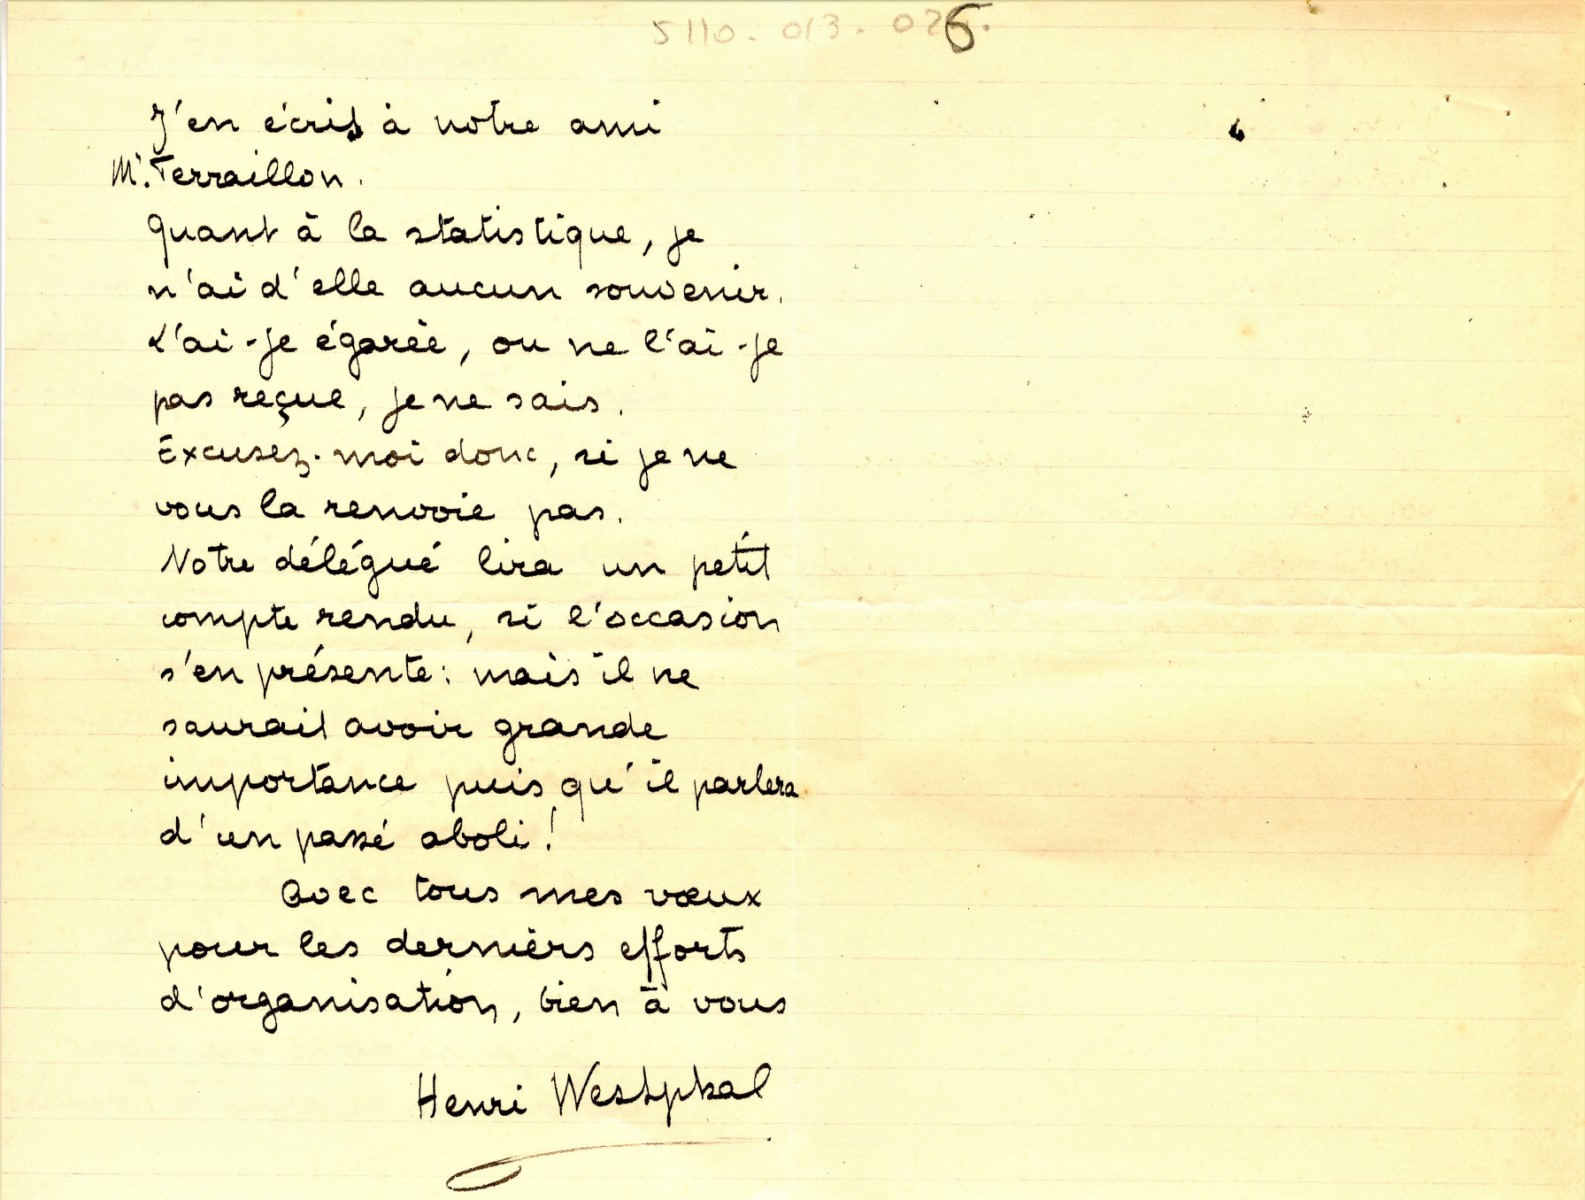 5110. 013. 026.
J'en écris à notre ami
Mr. Terraillon.
Quant à la statistique, je
n'ai d'elle aucun souvenir.
L'ai-je égarée, ou ne l'ai-je
pas reçue, je ne sais.
Excusez-moi donc, si je ne
vous la renvoie pas.
Notre délégué lira un petit
compte rendu, si l'occasion
s'en présente : mais il ne
saurait avoir grande
importance puisqu'il parlera
d'un passé aboli !
Avec tous mes vœux
pour les derniers efforts
d'organisation, bien à vous
Henri Westphal